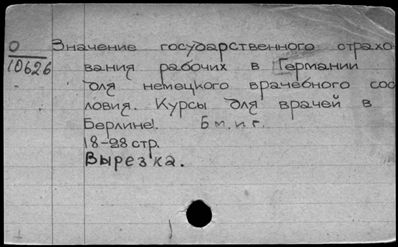 О Значение государственного страхо
10626 вания рабочих в Германии
для немецкого врачебного сос
ловия. Курсы для врачей в
Берлине. Б м. и г.
18-28 стр.
Вырезка.